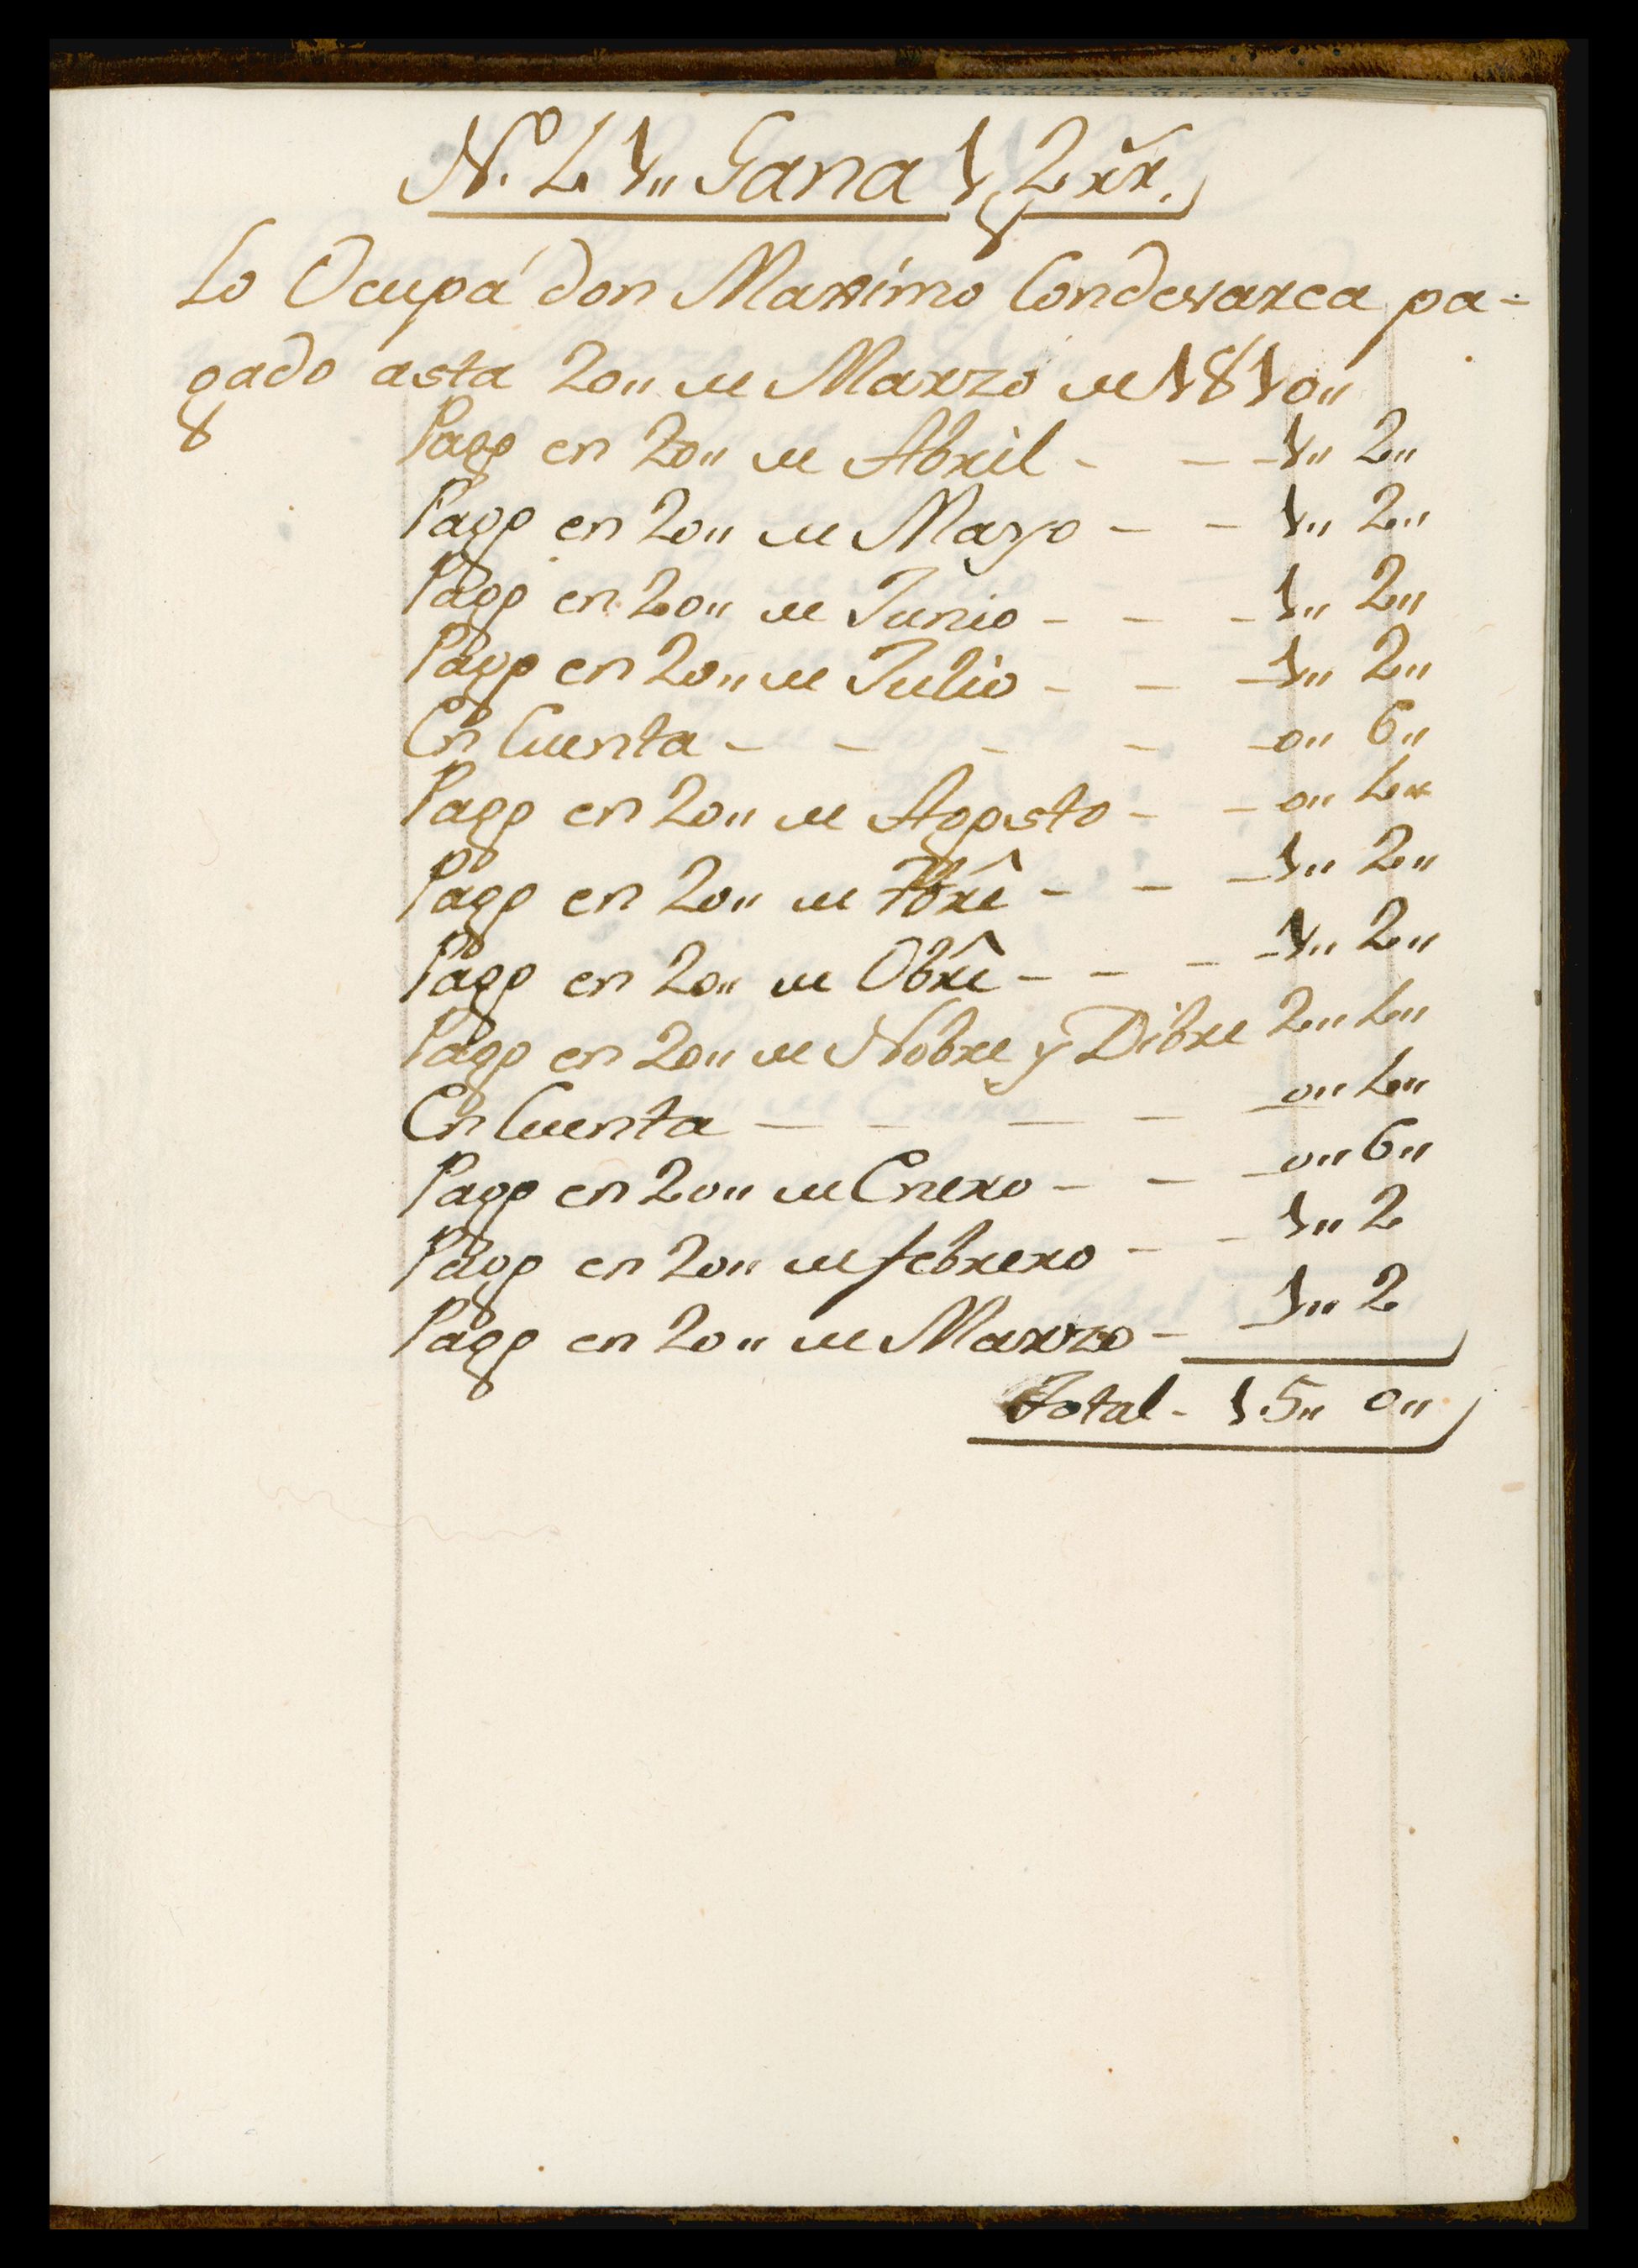 N.º 41,, Gana 1,, 2 rr.
Lo Ocupa don Maximo Condevarca pa-
gado asta 20,, de Marzo de 1810,,
Pago en 20,, de Abril - - - 1,, 2,,
Pago en 20,, de Mayo - - 1,, 2,,
Pago en 20,, de Junio - - - 1,, 2,,
Pago en 20,, de Julio - - - 1,, 2,,
En Cuenta - - - - - 0,, 6,,
Pago en 20,, de Agosto - - 0,, 4,,
Pago en 20,, de 7bre - - - 1,, 2,,
Pago en 20,, de Obre - - - - 1,, 2,,
Pago en 20,, de Nobre y Dibre 2,, 4,,
En Cuenta - - - - - 0,, 4,,
Pago en 20,, de Enero - - - 0,, 6,,
Pago en 20,, de febrero - - 1,, 2
Pago en 20,, de Marzo - - 1,, 2
Total - 15,, 0,,